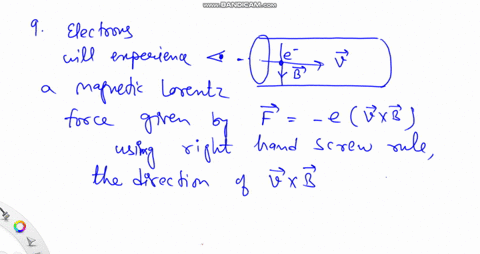 www.BANDICAM.com
9. Electrons
will experience
e⁻ V⃗
B⃗
a magnetic Lorentz
force given by F⃗ = -e (V⃗ x B⃗)
using right hand screw rule,
the direction of V⃗ x B⃗